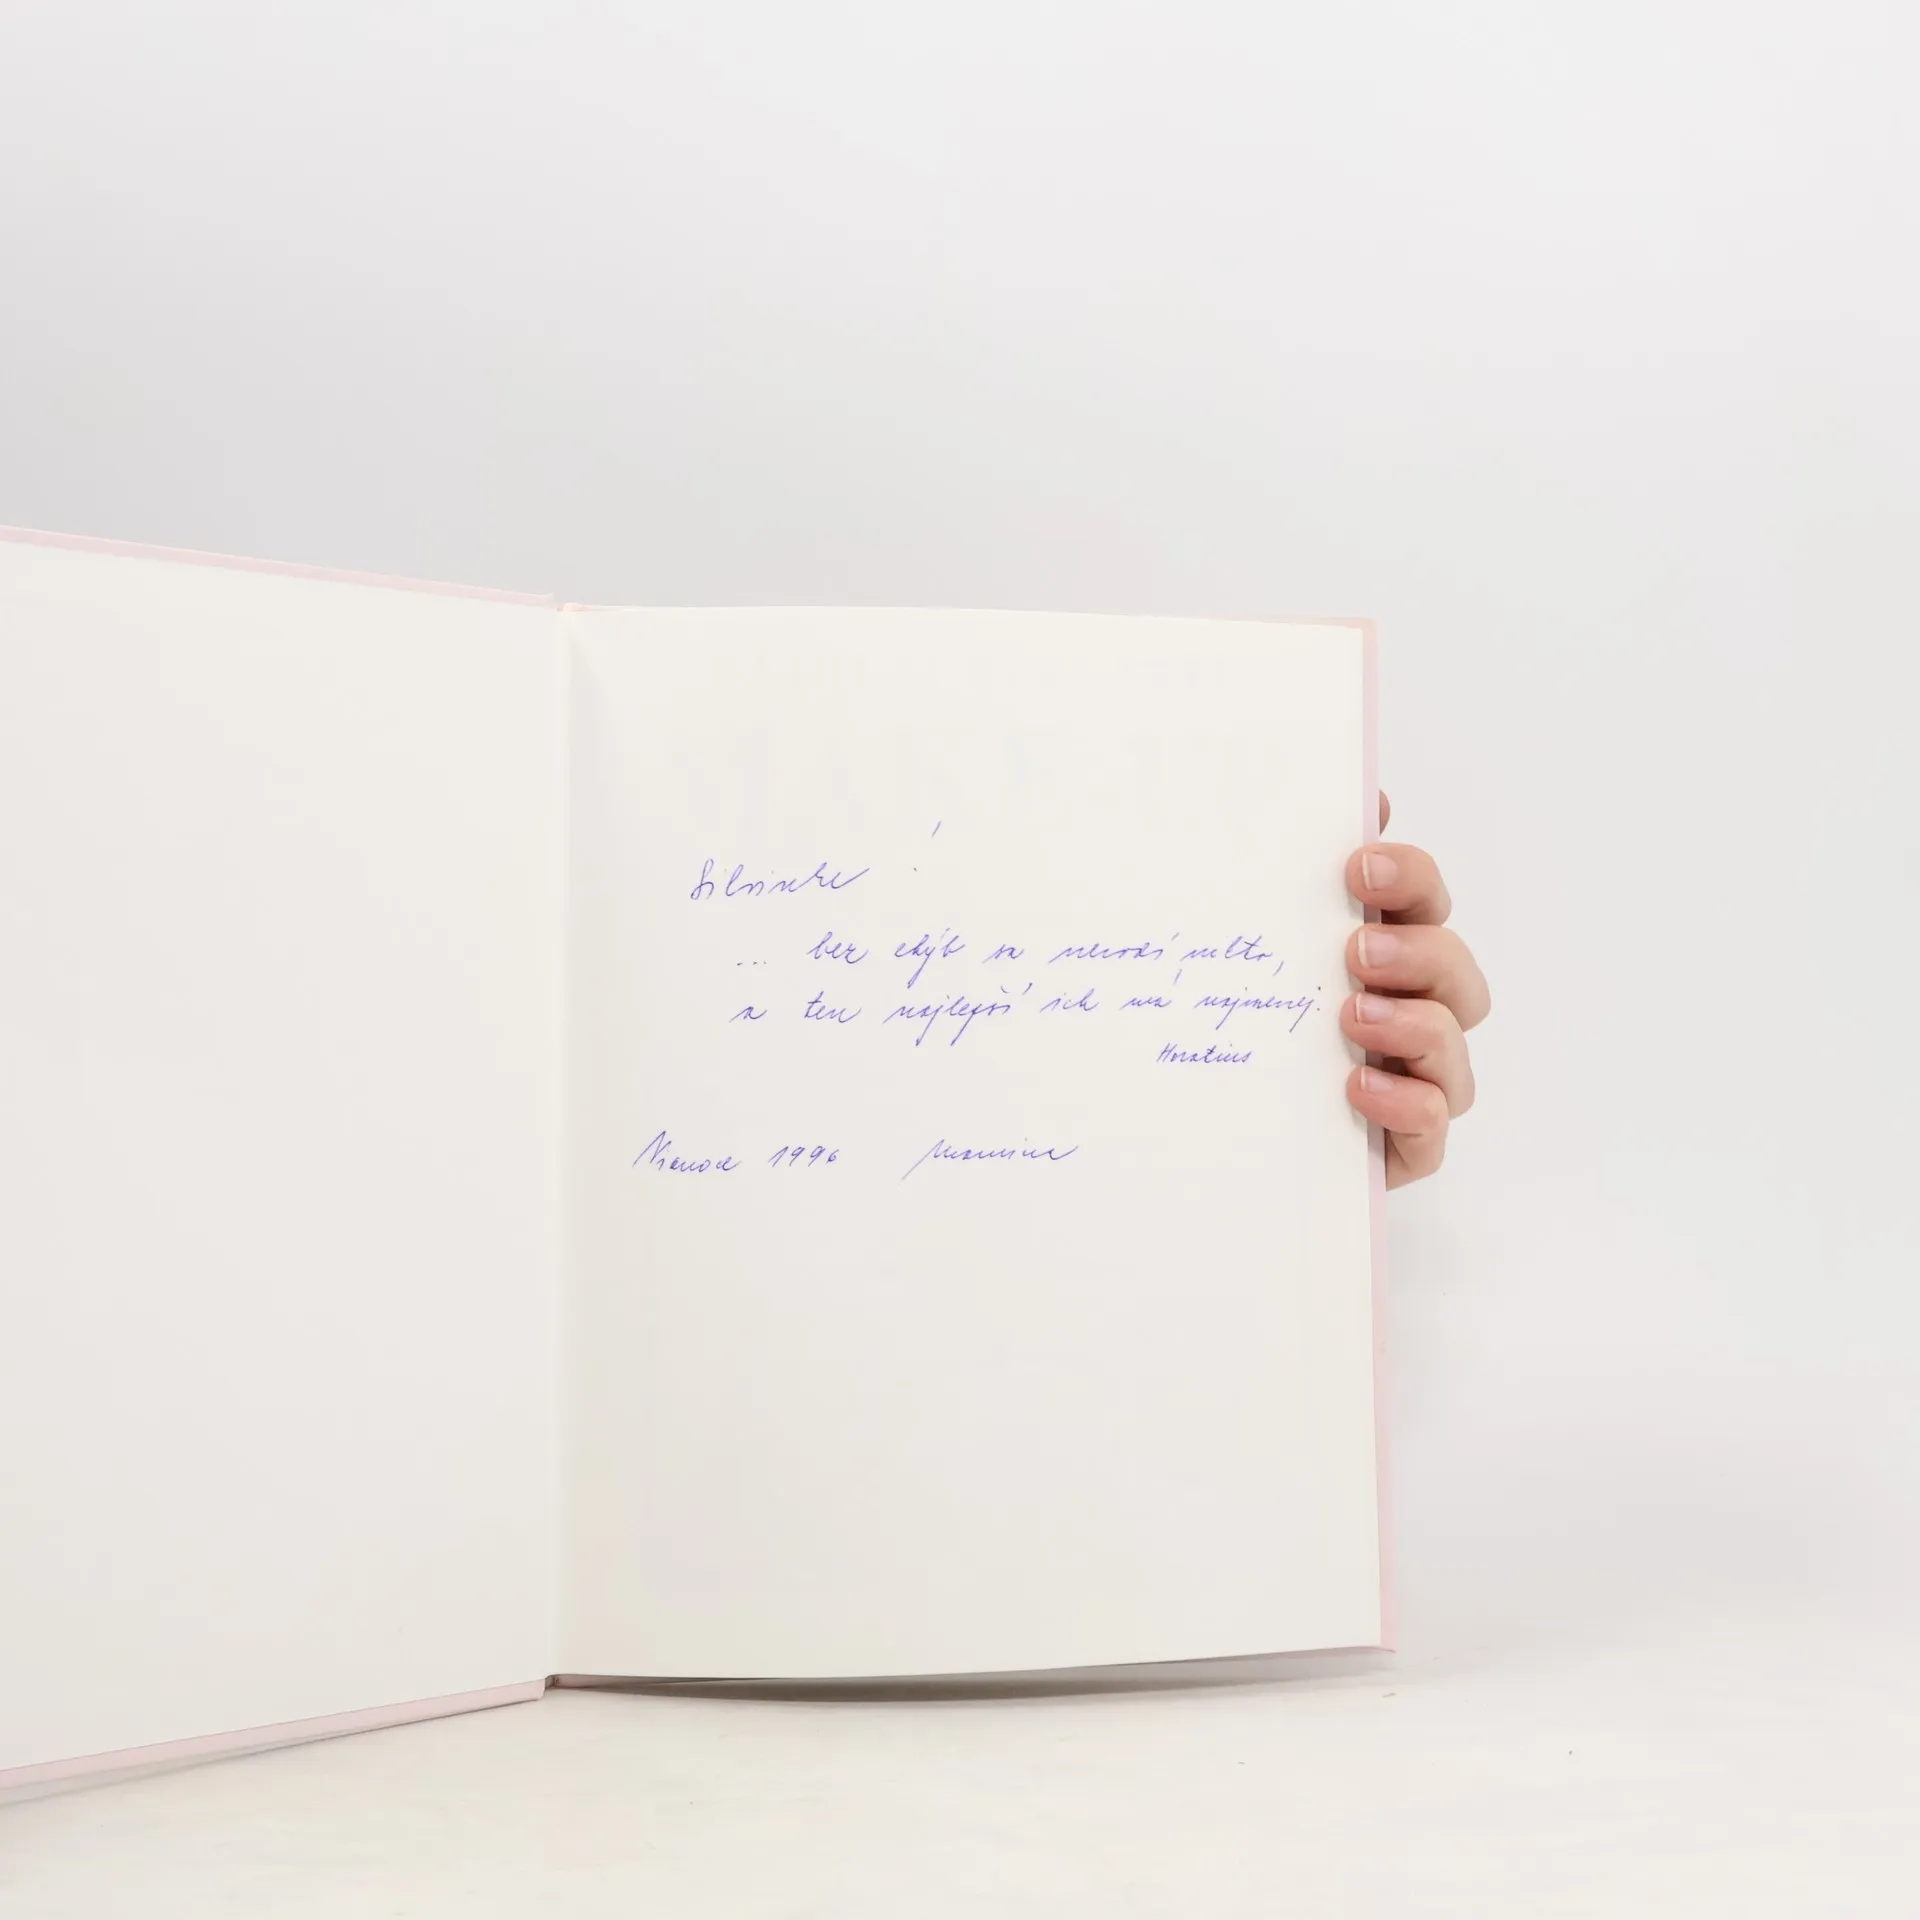 Silvinke !
... bez chýb sa nerodí nikto,
a ten najlepší ich má najmenej.
Horatius
Vianoce 1996 Mamina